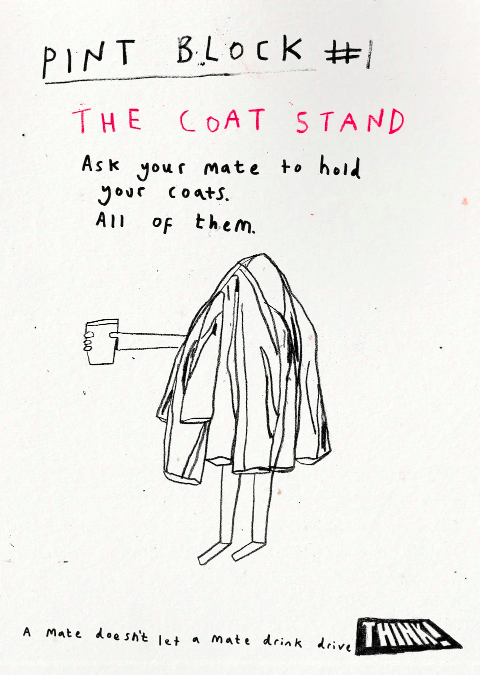 PINT BLOCK #1
THE COAT STAND
Ask your mate to hold
your coats.
All of them.
A mate doesn't let a mate drink drive
THINK!